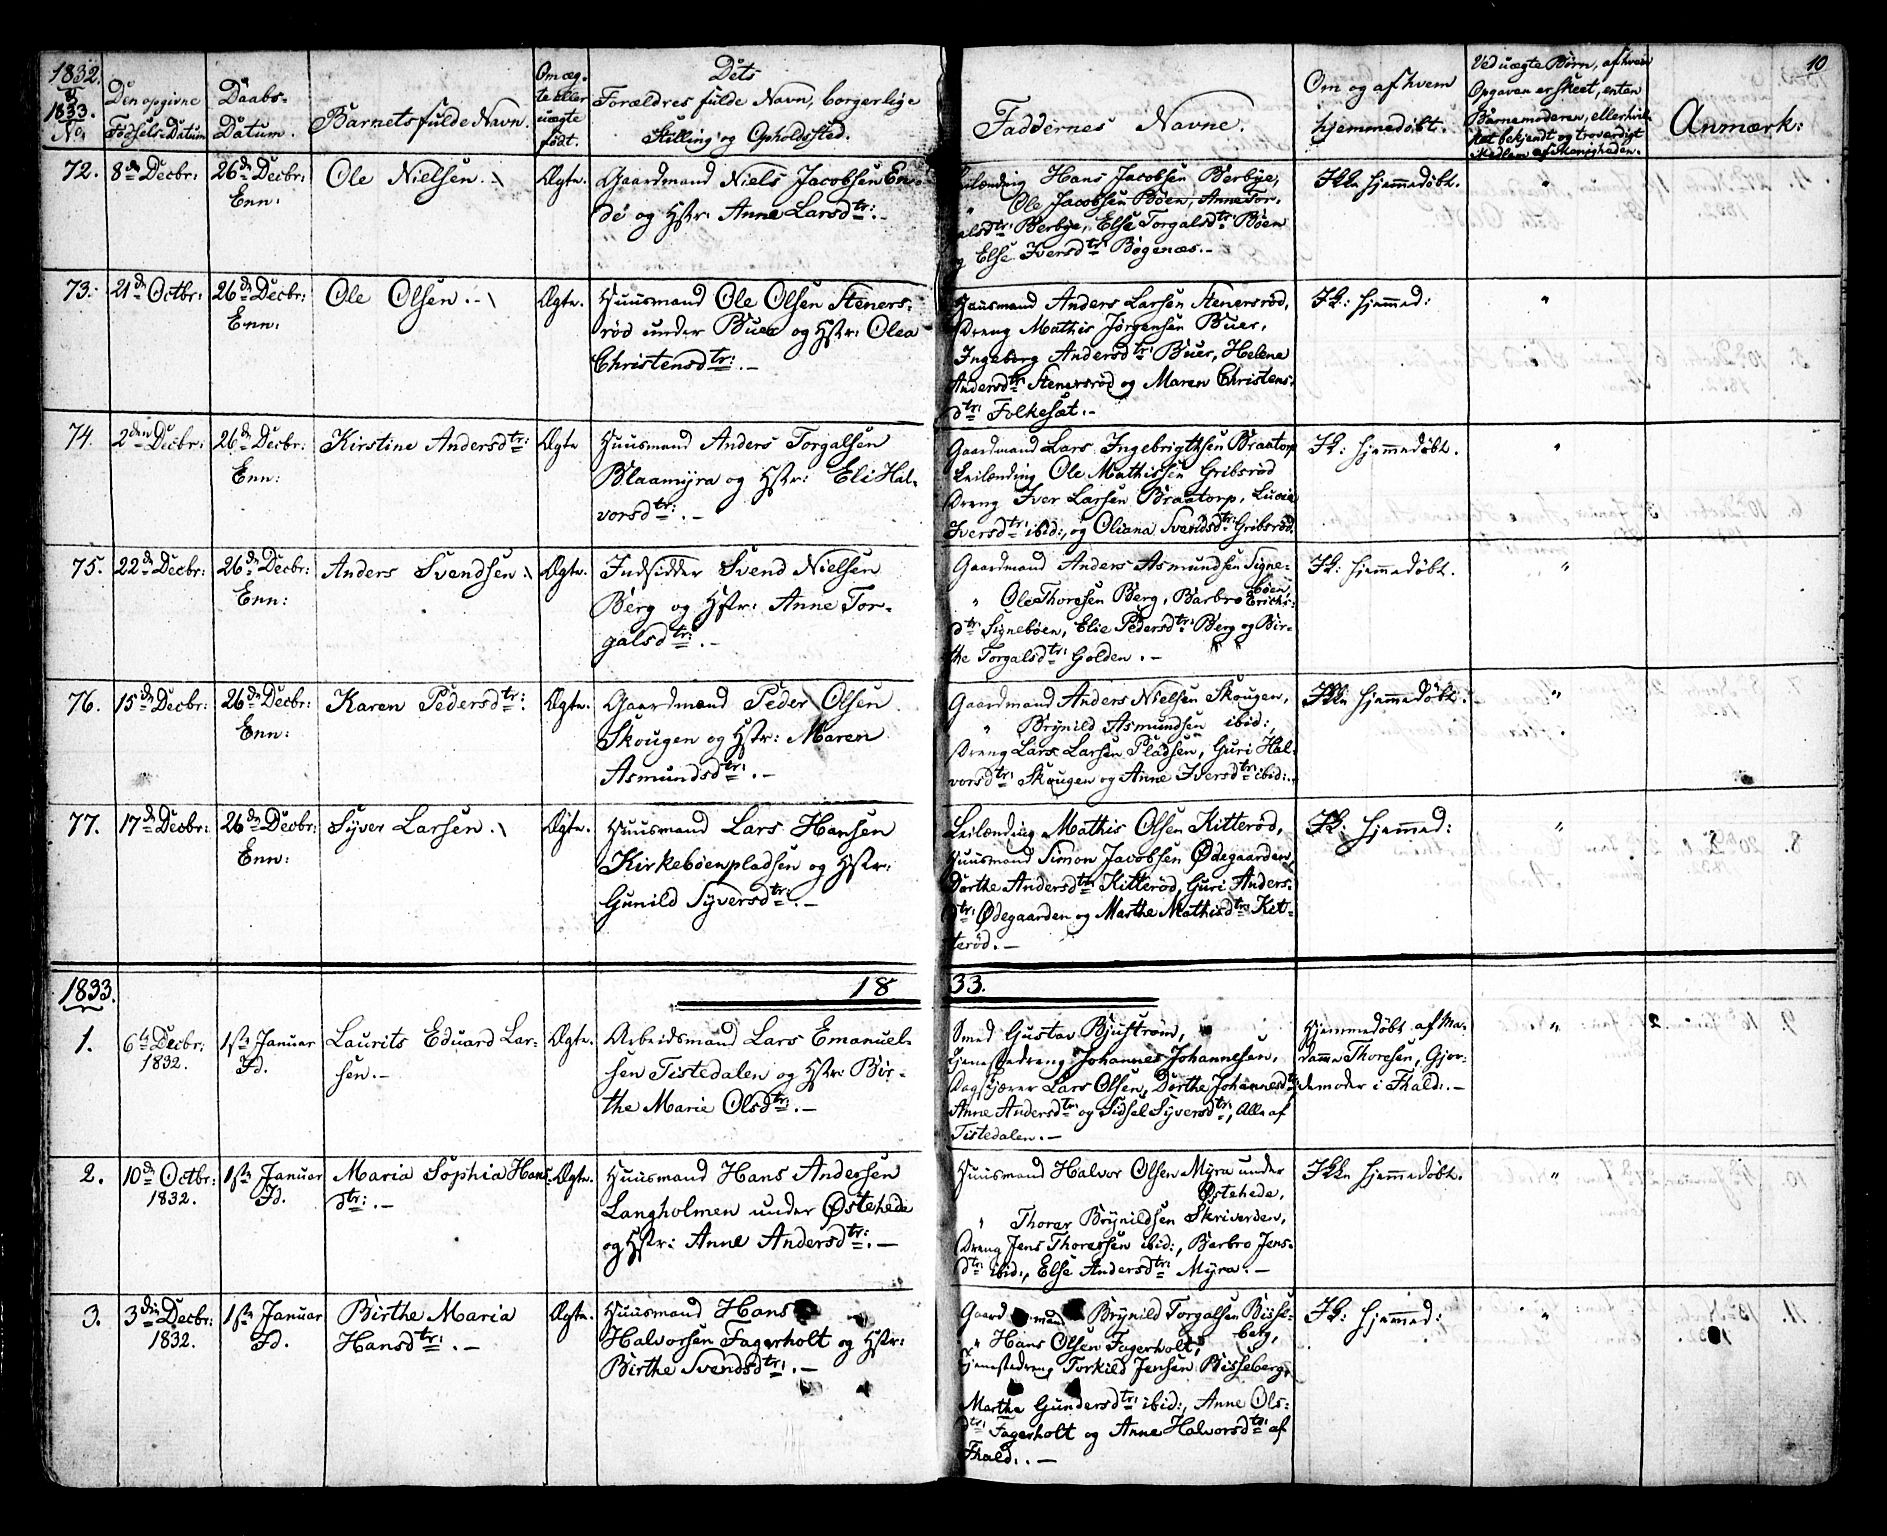 1832.
&
1833.
No.
Den opgivne
Fødsels-Datum
Daabs-
Datum.
Barnets fulde Navn.
Om æg-
te eller
uægte
født.
Dets
Forældres fulde Navn, borgerlige
Stilling og Opholdssted.
Faddernes Navne.
Om og af hvem
hjemmedøbt.
Ved uægte Børn, af hvem
Opgaven er skeet, enten
Barnemoderen, eller hvil-
ket bekjendt og troværdigt
Medlem af Menigheden.
Anmærk:
10
72.
8de Decbr:
26de Decbr:
Enn:
Ole Nielsen.
Ægte.
Gaardmand Niels Jacobsen En-
de og Hstr: Anne Larsdtr:.-
Leilænding Hans Jacobsen Berbye,
" Ole Jacobsen Bøen, Anne Tor-
alsdtr: Berbye, Else Torgalsdtr: Bøen
og Else Iversdtr: Bøgenæs.-
Ikke hjemmedøbt.
"
73.
21de Octbr:
26de Decbr:
Enn:
Ole Olsen.-
Ægte.
Huusmand Ole Olsen Steners-
rød under Buer og Hstr: Olea
Christensdtr:.-
Huusmand Anders Larsen Stenersrød,
Dreng Mathis Jørgensen Buer,
Ingeborg Andersdtr: Buer, Helene
Andersdtr: Stenersrød og Maren Christens-
dtr: Folkesæt.-
Ik: hjemmed:
"
74.
2den Decbr:
26de Decbr:
Enn:
Kirstine Andersdtr:
Ægte
Huusmand Anders Torgalsen
Blaamyra og Hstr: Eli Hal-
vorsdtr:.-
Gaardmand Lars Ingebrigthsen Braatorp
Leilænding Ole Mathissen Gribsrød
Dreng Iver Larsen Braatorp, Lucie
Iversdtr: ibid:, og Oliana Svendsdtr: Gribsrød.
Ik: hjemmedøbt.
"
75.
22de Decbr:
26de Decbr:
Enn:
Anders Svendsen
Ægte.
Indsidder Svend Nielsen
Berg og Hstr: Anne Tor-
galsdtr:.-
Gaardmand Anders Asmundsen Signe-
bøen,
" Ole Thoresen Berg, Barbro Erichs-
dtr: Signebøen, Elie Pedersdtr: Berg og Bir-
the Torgalsdtr: Golden.-
Ik: hjemmedøbt.
"
76.
15de Decbr:
26de Decbr:
Enn:
Karen Pedersdtr:
Ægte.
Gaardmand Peder Olsen
Skougen og Hstr: Maren
Asmundsdtr:.-
Gaardmand Anders Nielsen Skougen,
" Brynild Asmundsen ibid:,
Dreng Lars Larsen Pladsen, Guri Hal-
vorsdtr: Skougen og Anne Iversdtr: ibid:.
Ikke hjemmedøbt.
"
77.
17de Decbr:
26de Decbr:
Enn:
Syver Larsen.
Ægte.
Huusmand Lars Hansen
Kirkebøenpladsen og Hstr:
Gunild Syversdtr:.-
Leilænding Mathis Olsen Kitterød,
Huusmand Simon Jacobsen Ødegaarden,
Dorthe Andersdtr: Kitterød, Guri Anders-
dtr: Ødegaarden og Marthe Mathisdtr: Kit-
terød.-
Ik: hjemmed:
"
1833.
18 33.
1.
6te Decbr:
1832.
1ste Januar
Id.
Laurits Eduard Lar-
sen.-
Ægte.
Arbeidsmand Lars Emanuel-
sen Tistedalen og Hstr: Bir-
the Marie Olsdtr:.-
Smed Gustav Bjustrøm,
Tjenestedreng Johannes Johannesen,
Dagskjærer Lars Olsen, Dorthe Johannesdtr:,
Anne Andersdtr: og Sidsel Syversdtr:, Alle af
Tistedalen.-
Hjemmedøbt af Ma-
dame Thoresen, Gjor-
demoder i Fhald:.-
"
2.
10de Octbr:
1832.
1ste Januar
Id.
Maria Sophia Hans-
dtr:.-
Ægte.
Huusmand Hans Andersen
Langholmen under Østehede
og Hstr: Anne Andersdtr:.-
Huusmand Halvor Olsen Myra under
Østehede,
" Thorer Brynildsen Skriveröen,
Dreng Jens Thoressen ibid:, Barbro Jens-
dtr: ibid:, Else Andersdtr: Myra.-
Ikke hjemmedøbt.
"
3.
3die Decbr:
1832.
1ste Januar
Id.
Birthe Maria
Hansdtr:.-
Ægte.
Huusmand Hans
Halvorsen Fagerholt og Hstr:
Birthe Svendsdtr:.-
Gaardmand Brynild Torgalsen Bisse-
berg,
" Hans Olsen Fagerholt,
Tjenestedreng Torkild Jensen Bisseberg,
Marthe Gundersdtr: ibid:, Anne Ols-
dtr: Fagerholt og Anne Halvorsdtr: af
Fhald:.-
Ik: hjemmed:
"